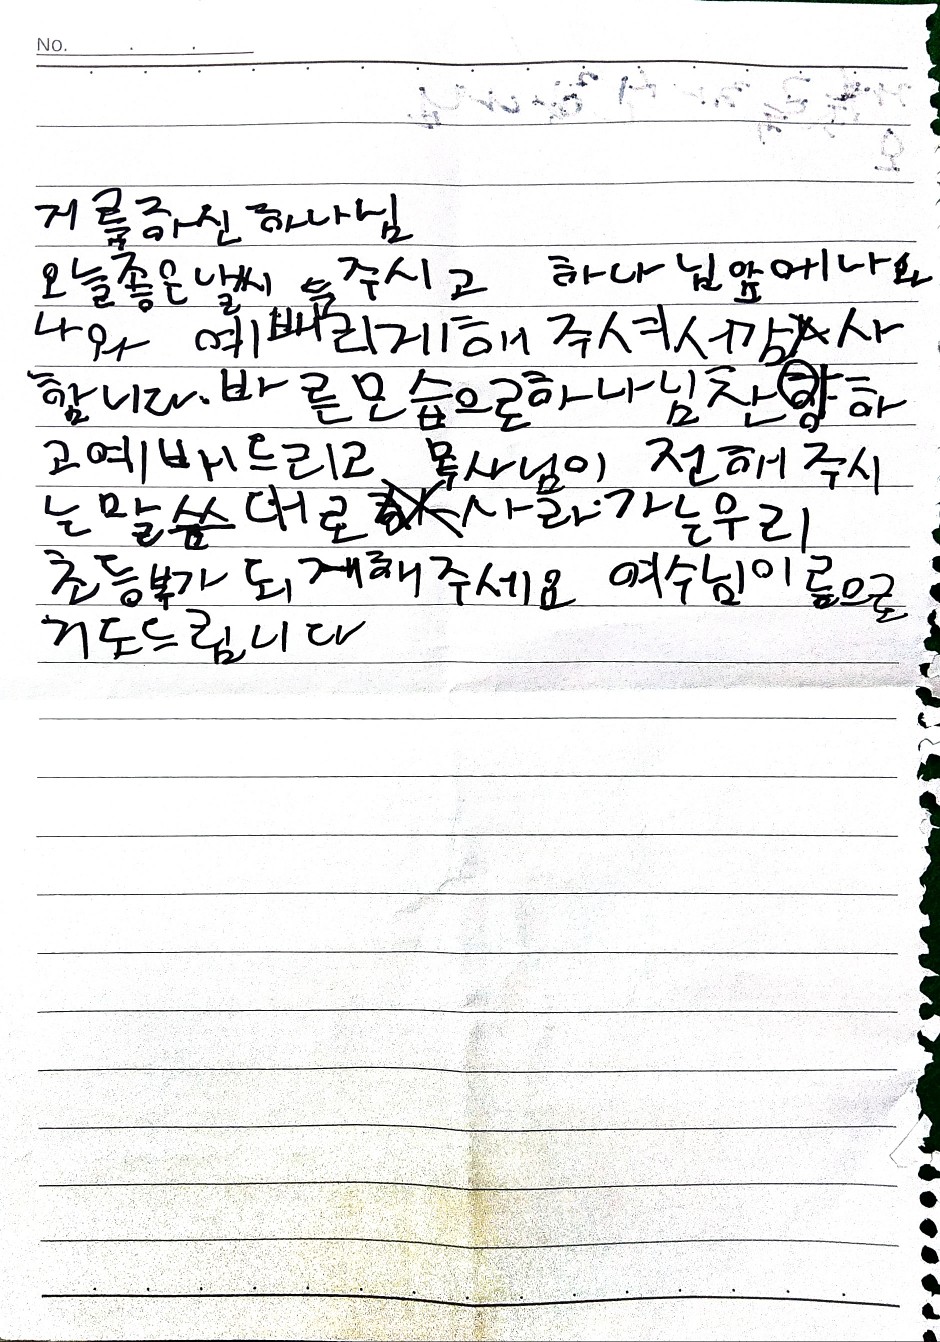 No.
거룩하신 하나님
오늘좋은날씨 를 주시고 하나님앞에나와
나와 예배리게해 주셔서감사
합니다. 바른모습으로하나님찬양하
고예배드리고 목사님이 전해주시
는말씀대로 사라가는우리
초등부가 되게해주세요 예수님이름으로
기도드림니다